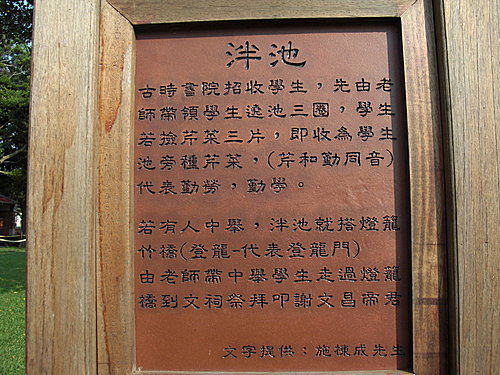 泮池
古時書院招收學生，先由老
師帶領學生遶池三圈，學生
若撿芹菜三片，即收為學生
池旁種芹菜，(芹和勤同音)
代表勤勞，勤學。
若有人中舉，泮池就搭燈籠
竹橋(登龍-代表登龍門)
由老師帶中舉學生走過燈籠
橋到文祠祭拜叩謝文昌帝君
文字提供：施棟成先生